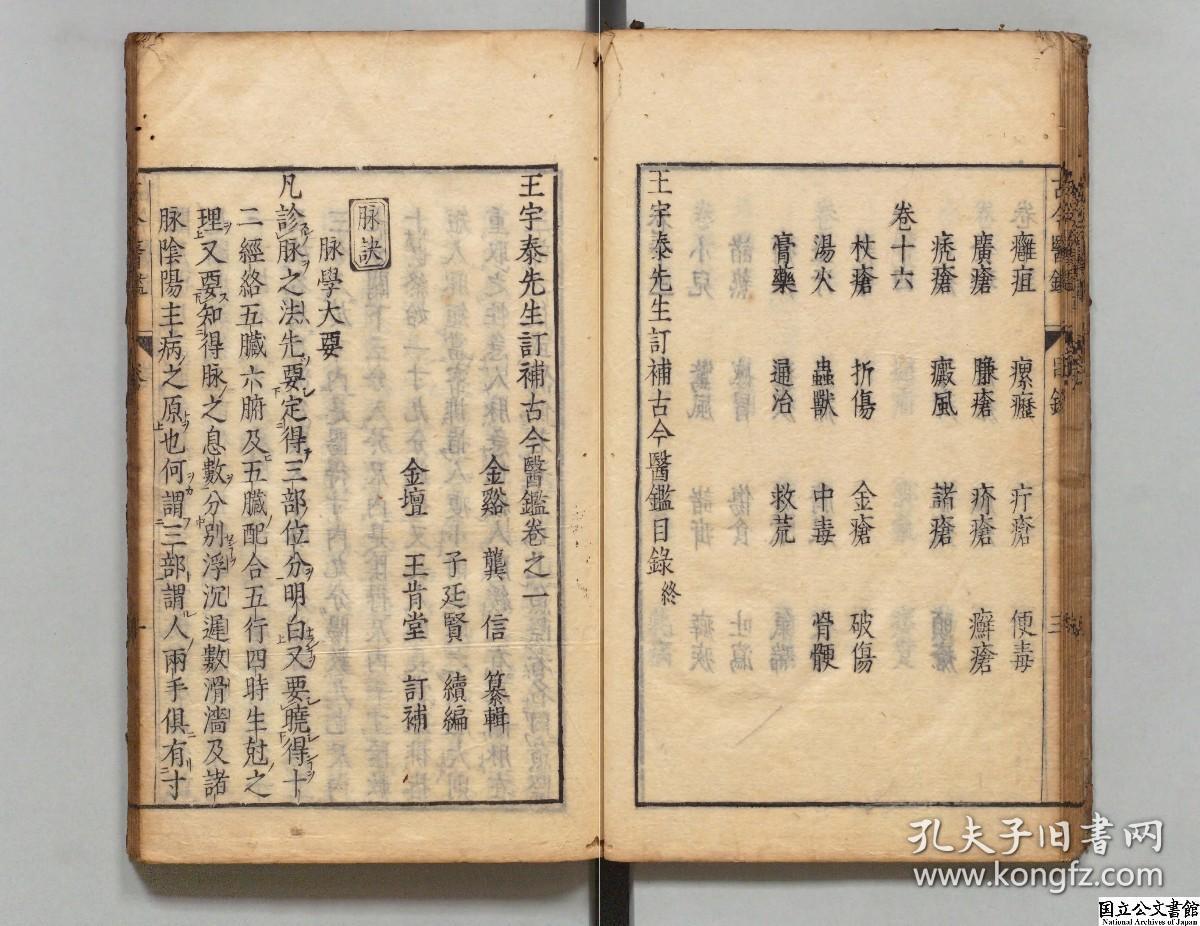 癰疽 瘰癧 疔瘡 便毒
廣瘡 臁瘡 疥瘡 癬瘡
禿瘡 癜風 諸瘡
卷十六
杖瘡 折傷 金瘡 破傷
湯火 蟲獸 中毒 骨骾
膏藥 通治 救荒
王宇泰先生訂補古今醫鑑目錄終
王宇泰先生訂補古今醫鑑卷之一
金谿 龔信 纂輯
子廷賢 續編
金壇 王肯堂 訂補
脉訣
脉學大要
凡診脉之法先要定得三部位分明白又要曉得十
二經絡五臟六腑及五臟配合五行四時生尅之
理又要知得脉之息數分別浮沉遲數滑濇及諸
脉陰陽主病之原也何謂三部謂人兩手俱有寸
孔夫子旧書网
www.kongfz.com
国立公文書館
National Archives of Japan